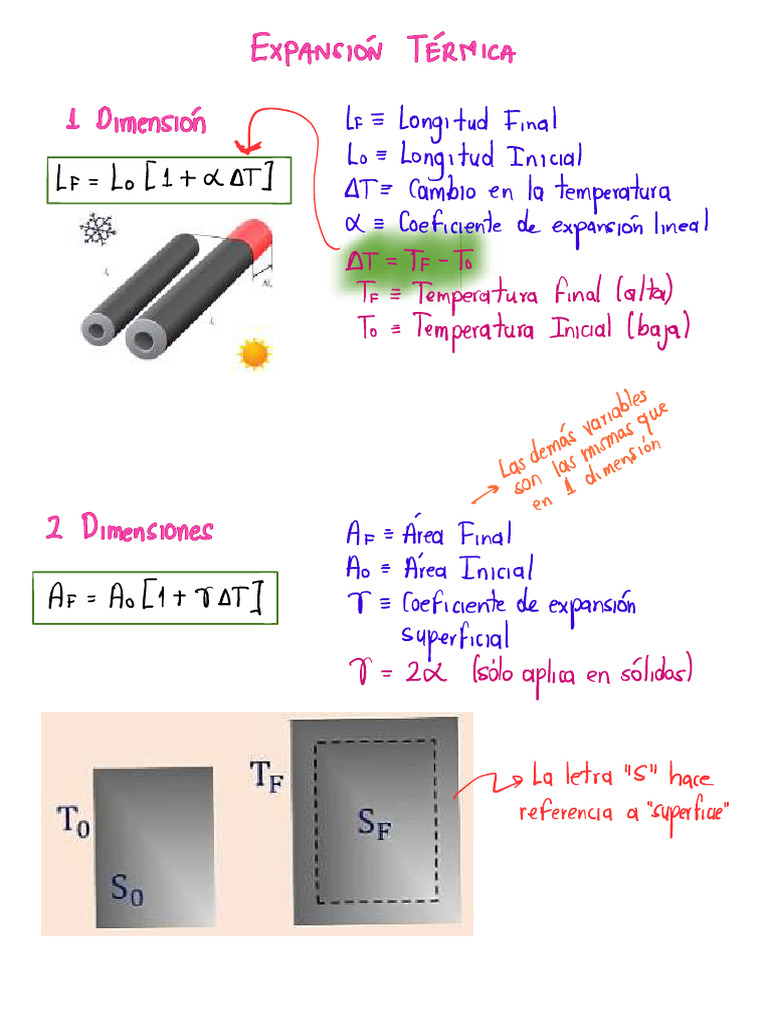 EXPANSIÓN TÉRMICA
1 Dimensión
LF = Lo [1 + α ΔT]
LF ≡ Longitud Final
Lo ≡ Longitud Inicial
ΔT ≡ Cambio en la temperatura
α ≡ Coeficiente de expansión lineal
ΔT = TF - To
TF ≡ Temperatura final (alta)
To ≡ Temperatura Inicial (baja)
Las demás variables
son las mismas que
en 1 dimensión
2 Dimensiones
AF = Ao [1 + γ ΔT]
AF ≡ Área Final
Ao ≡ Área Inicial
γ ≡ Coeficiente de expansión
superficial
γ = 2α (sólo aplica en sólidos)
T0
S0
TF
SF
La letra "S" hace
referencia a "superficie"